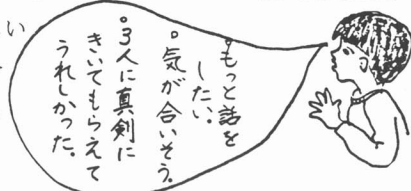 。もっと話を
したい。
。気が合いそう。
。3人に真剣に
きいてもらえて
うれしかった。
い